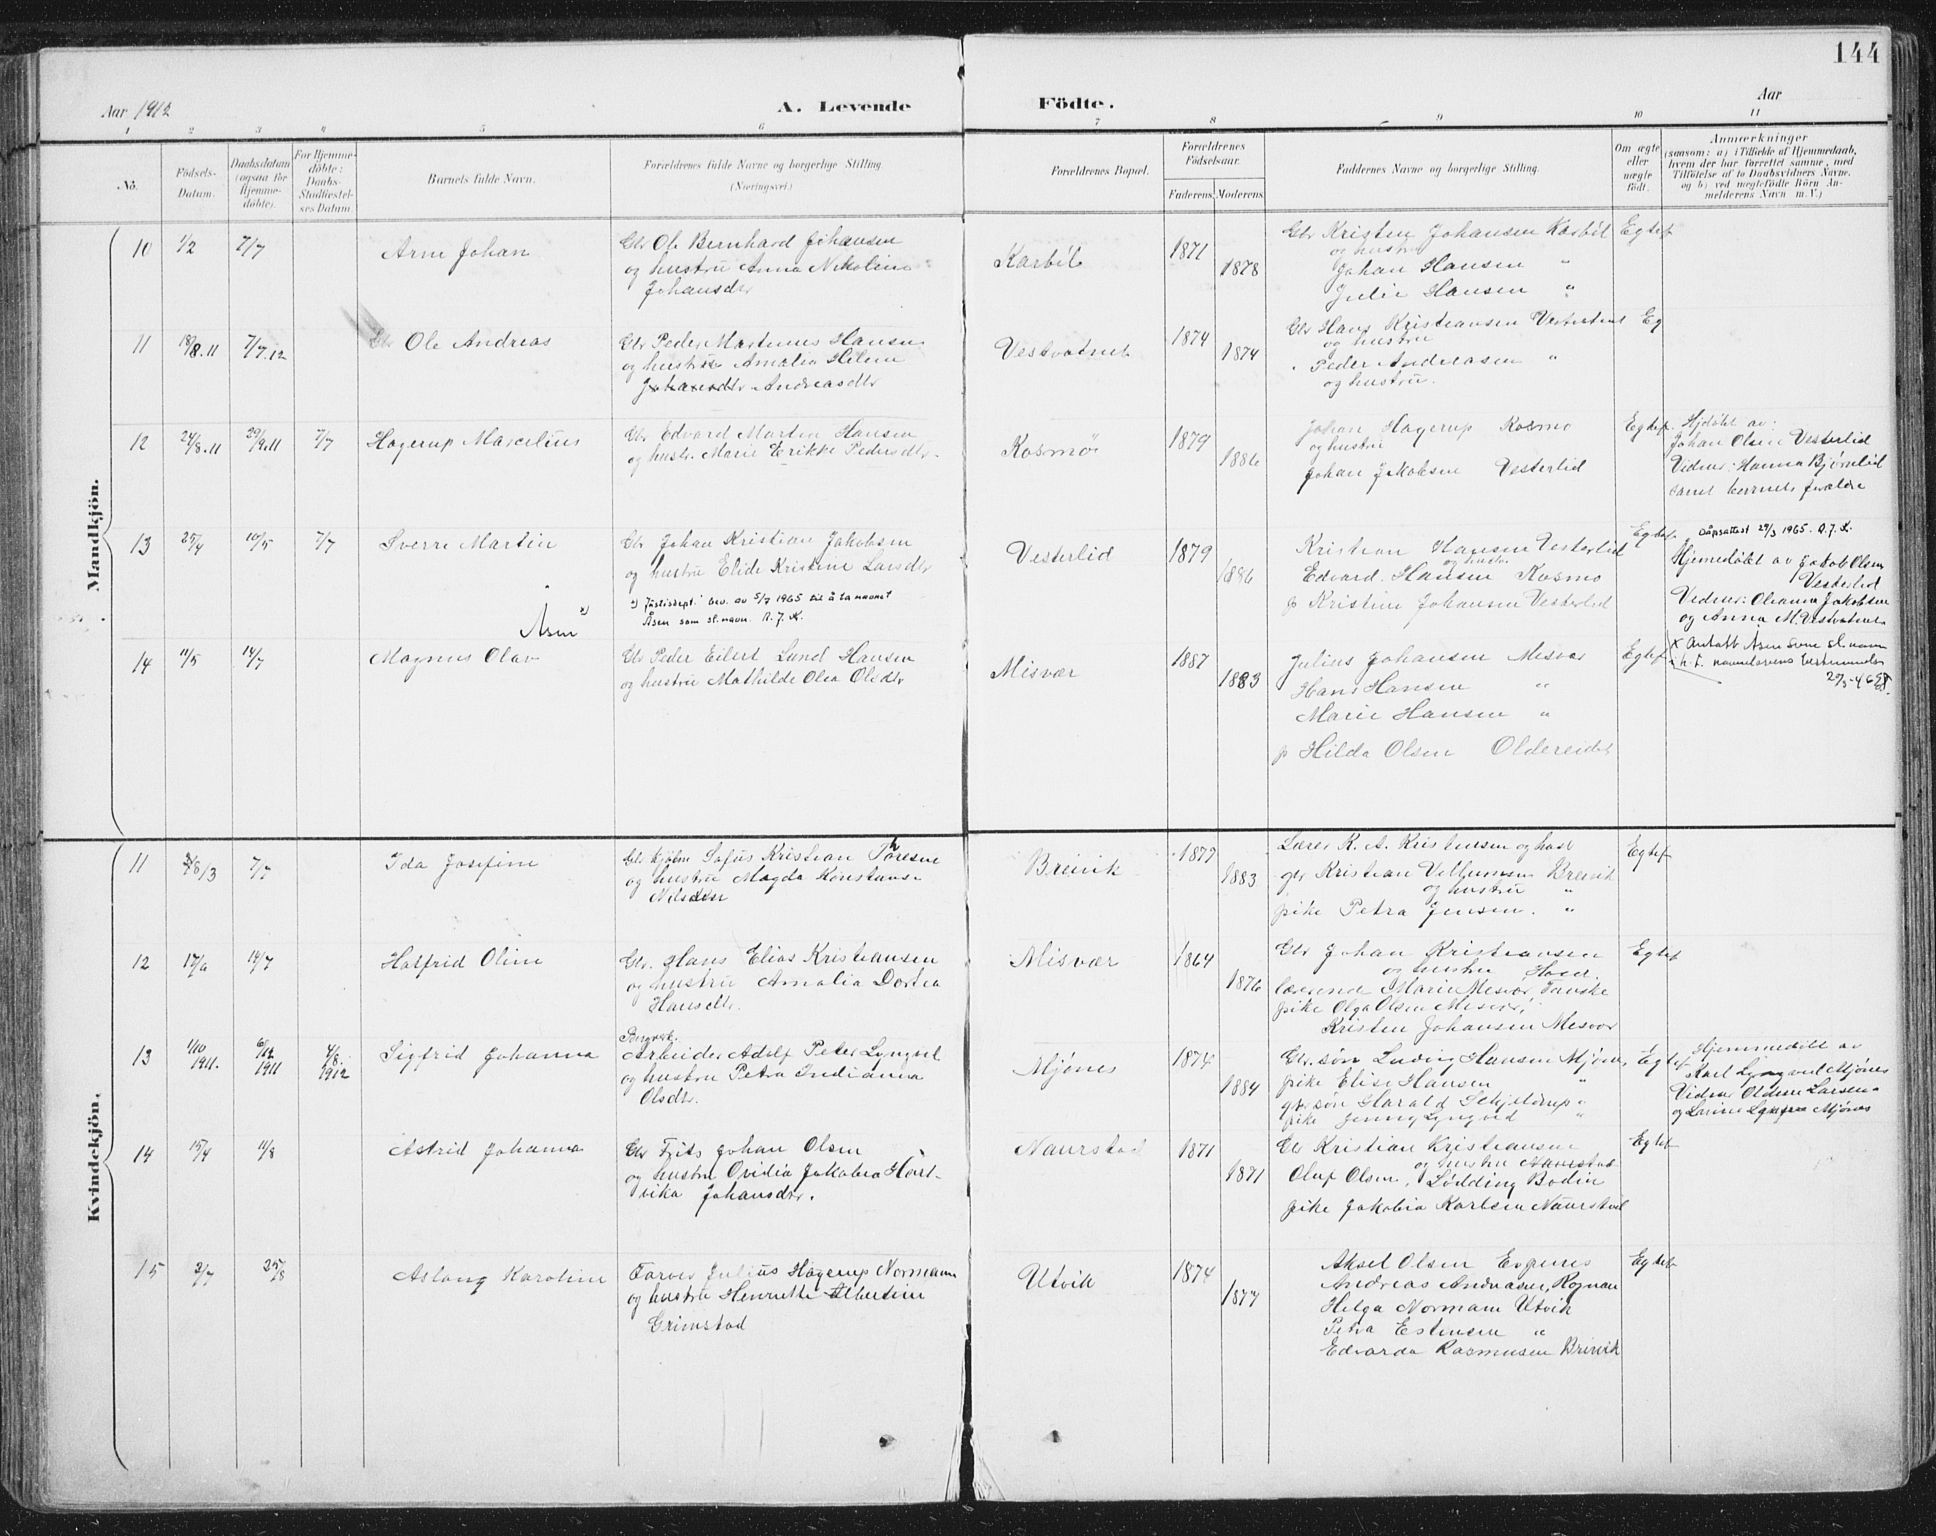 144
Aar 1912
A. Levende
Födte.
Aar
1 2 3 4 5 6 7 8 9 10 11
No.
Födsels-Datum.
Daabsdatum (ogsaa for Hjemmedöbte).
For Hjemmedöbte: Daabs-Stadfæstelses Datum.
Barnets fulde Navn.
Forældrenes fulde Navne og borgerlige Stilling. (Næringsvei.)
Forældrenes Bopæl.
Forældrenes Födselsaar.
Faderens. Moderens.
Faddernes Navne og borgerlige Stilling.
Om ægte eller uægte födt.
Anmærkninger
(saasom: a) i Tilfælde af Hjemmedaab,
hvem der har forrettet samme, med
Tilföielse af to Daabsvidners Navne,
og b) ved uægtefödte Börn Anmelderens Navn m. V.)
Mandkjön.
10 1/2 7/7 Arne Johan
Gbr Ole Bernhard Johansen
og hustru Anna Nikoline
Johansdtr
Karbøl 1871 1878
Gbr Kristen Johansen Karbøl
og hustru
Johan Hansen "
Julie Hansen "
Egtef
11 18/8.11 7/7.12 Ole Andreas
Gbr Peder Martinus Hansen
og hustru Amalia Helene
Johansdtr Andreasdtr
Vestvatnet 1874 1874
Gbr Hans Kristiansen Vesterlid
og hustru
Peder Andreasen "
og hustru.
Eg
12 24/8.11 29/9.11 7/7 Hagerup Marcelius
Gbr Edvard Martin Hansen
og hustr. Marie Erikke Pedersdtr
Kosmo 1879 1886
Johan Hagerup Kosmo
og hustru
Johan Jakobsen Vesterlid
Egtef.
Hjdøbt av:
Johan Olsen Vesterlid
Vidner: Hanna Bjørnlid
samt barnets forældre
13 25/4 10/5 7/7 Sverre Martin
Åsen x)
Gbr Johan Kristian Jakobsen
og hustru Elide Kristine Larsdtr
x) Justisdept. bev. av 5/7 1965 til å ta navnet
Åsen som sl. navn. R. J. K.
Vesterlid 1879 1886
Kristian Hansen Vesterlid
og hustru
Edvard Hansen Kosmo
p Kristine Johansen Vesterlid
Egtef.
Dåpsattest 29/3 1965. R. J. K.
Hjemedøbt av Jakob Olsen
Vesterlid
Vidner: Oleanna Jakobsen
og Anna M. Vestvatnet
x Antatt Åsen som sl. navn
i h. t. navnelovens bestemmelser
14 11/5 14/7 Magnus Olav
Gbr Peder Eilert Lund Hansen
og hustru Mathilde Olea Olsdtr
Misvær 1887 1883
Julius Johansen Mesvær
Hans Hansen "
Marie Hansen "
p Hilda Olsen Oldereidet
Egtef
Kvindekjön.
11 7/7 Ida Josefine
Gbr kjøbm Sofus Kristian Thoresen
og hustru Magda Konstanse
Nilsdtr
Breivik 1877 1883
Lærer K. A. Kristensen og hust
gbr Kristian Villumsen Breivik
og hustru "
pike Petra Jensen. "
Egtef
12 17/6 14/7 Halfrid Oline
Gbr. Hans Elias Kristiansen
og hustru Amalia Dortea
Hansdtr.
Misvær 1864 1876
Gbr Johan Kristiansen
og hustru
lærerinde Marie Mesvær, Fauske
pike Olga Olsen Mesvær,
Kristen Johansen Mesvær
Egtef
13 1/10 1911. 6/12 1911 4/8 1912 Sigfrid Johanna
Bergverk.
Arbeider Adolf Peter Lyngvel
og hustru Petra Indianna
Olsdtr.
Mjønes 1874 1884
Gbr. søn Ludvig Hansen Mjønes
pike Elise Hansen "
gbr søn Harald Schjeldrup "
pike Jenny Lyngved "
Egtef
Hjemmedøbt av
Karl Lyngved Mjønes
Vidner Oldine Larsen
14 15/4 11/8 Astrid Johanna
Gbr Frits Johan Olsen
og hustru Ovidia Jakobia Hendrika Johansdtr.
Naurstad 1871 1871
Gbr Kristian Kristiansen
og hustru Naurstad
Oluf Olsen, Lødding Bodin
pike Jakobia Karlsen Naurstad
Egtef
15 2/7 25/8 Aslaug Karoline
Farver Julius Hagerup Normann
og hustru Henriette Albertine
Grimstad
Utvik 1874 1877
Aksel Olsen Evjenes
Andreas Andreasen, Rognan
Helga Normann Utvik
Petra Estensen "
Edvarda Rasmusen Breivik
Egtef